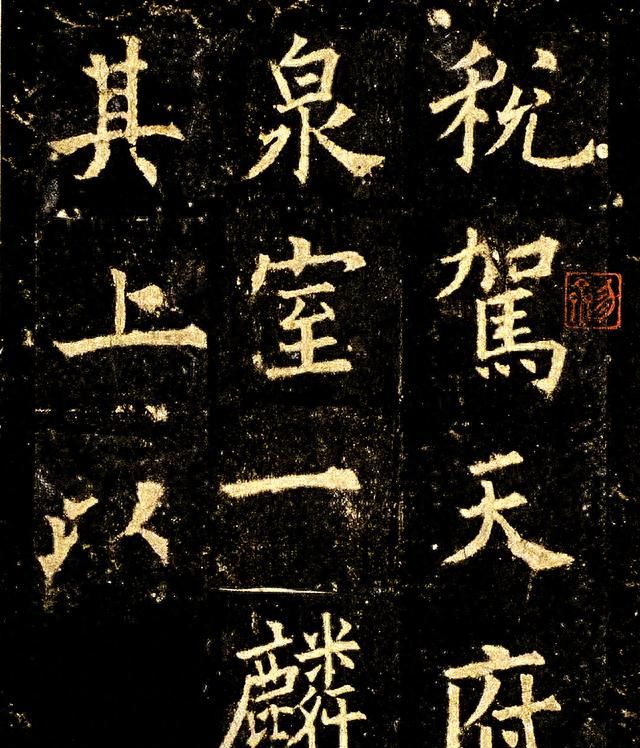 税駕天府
泉室一麟
其上以